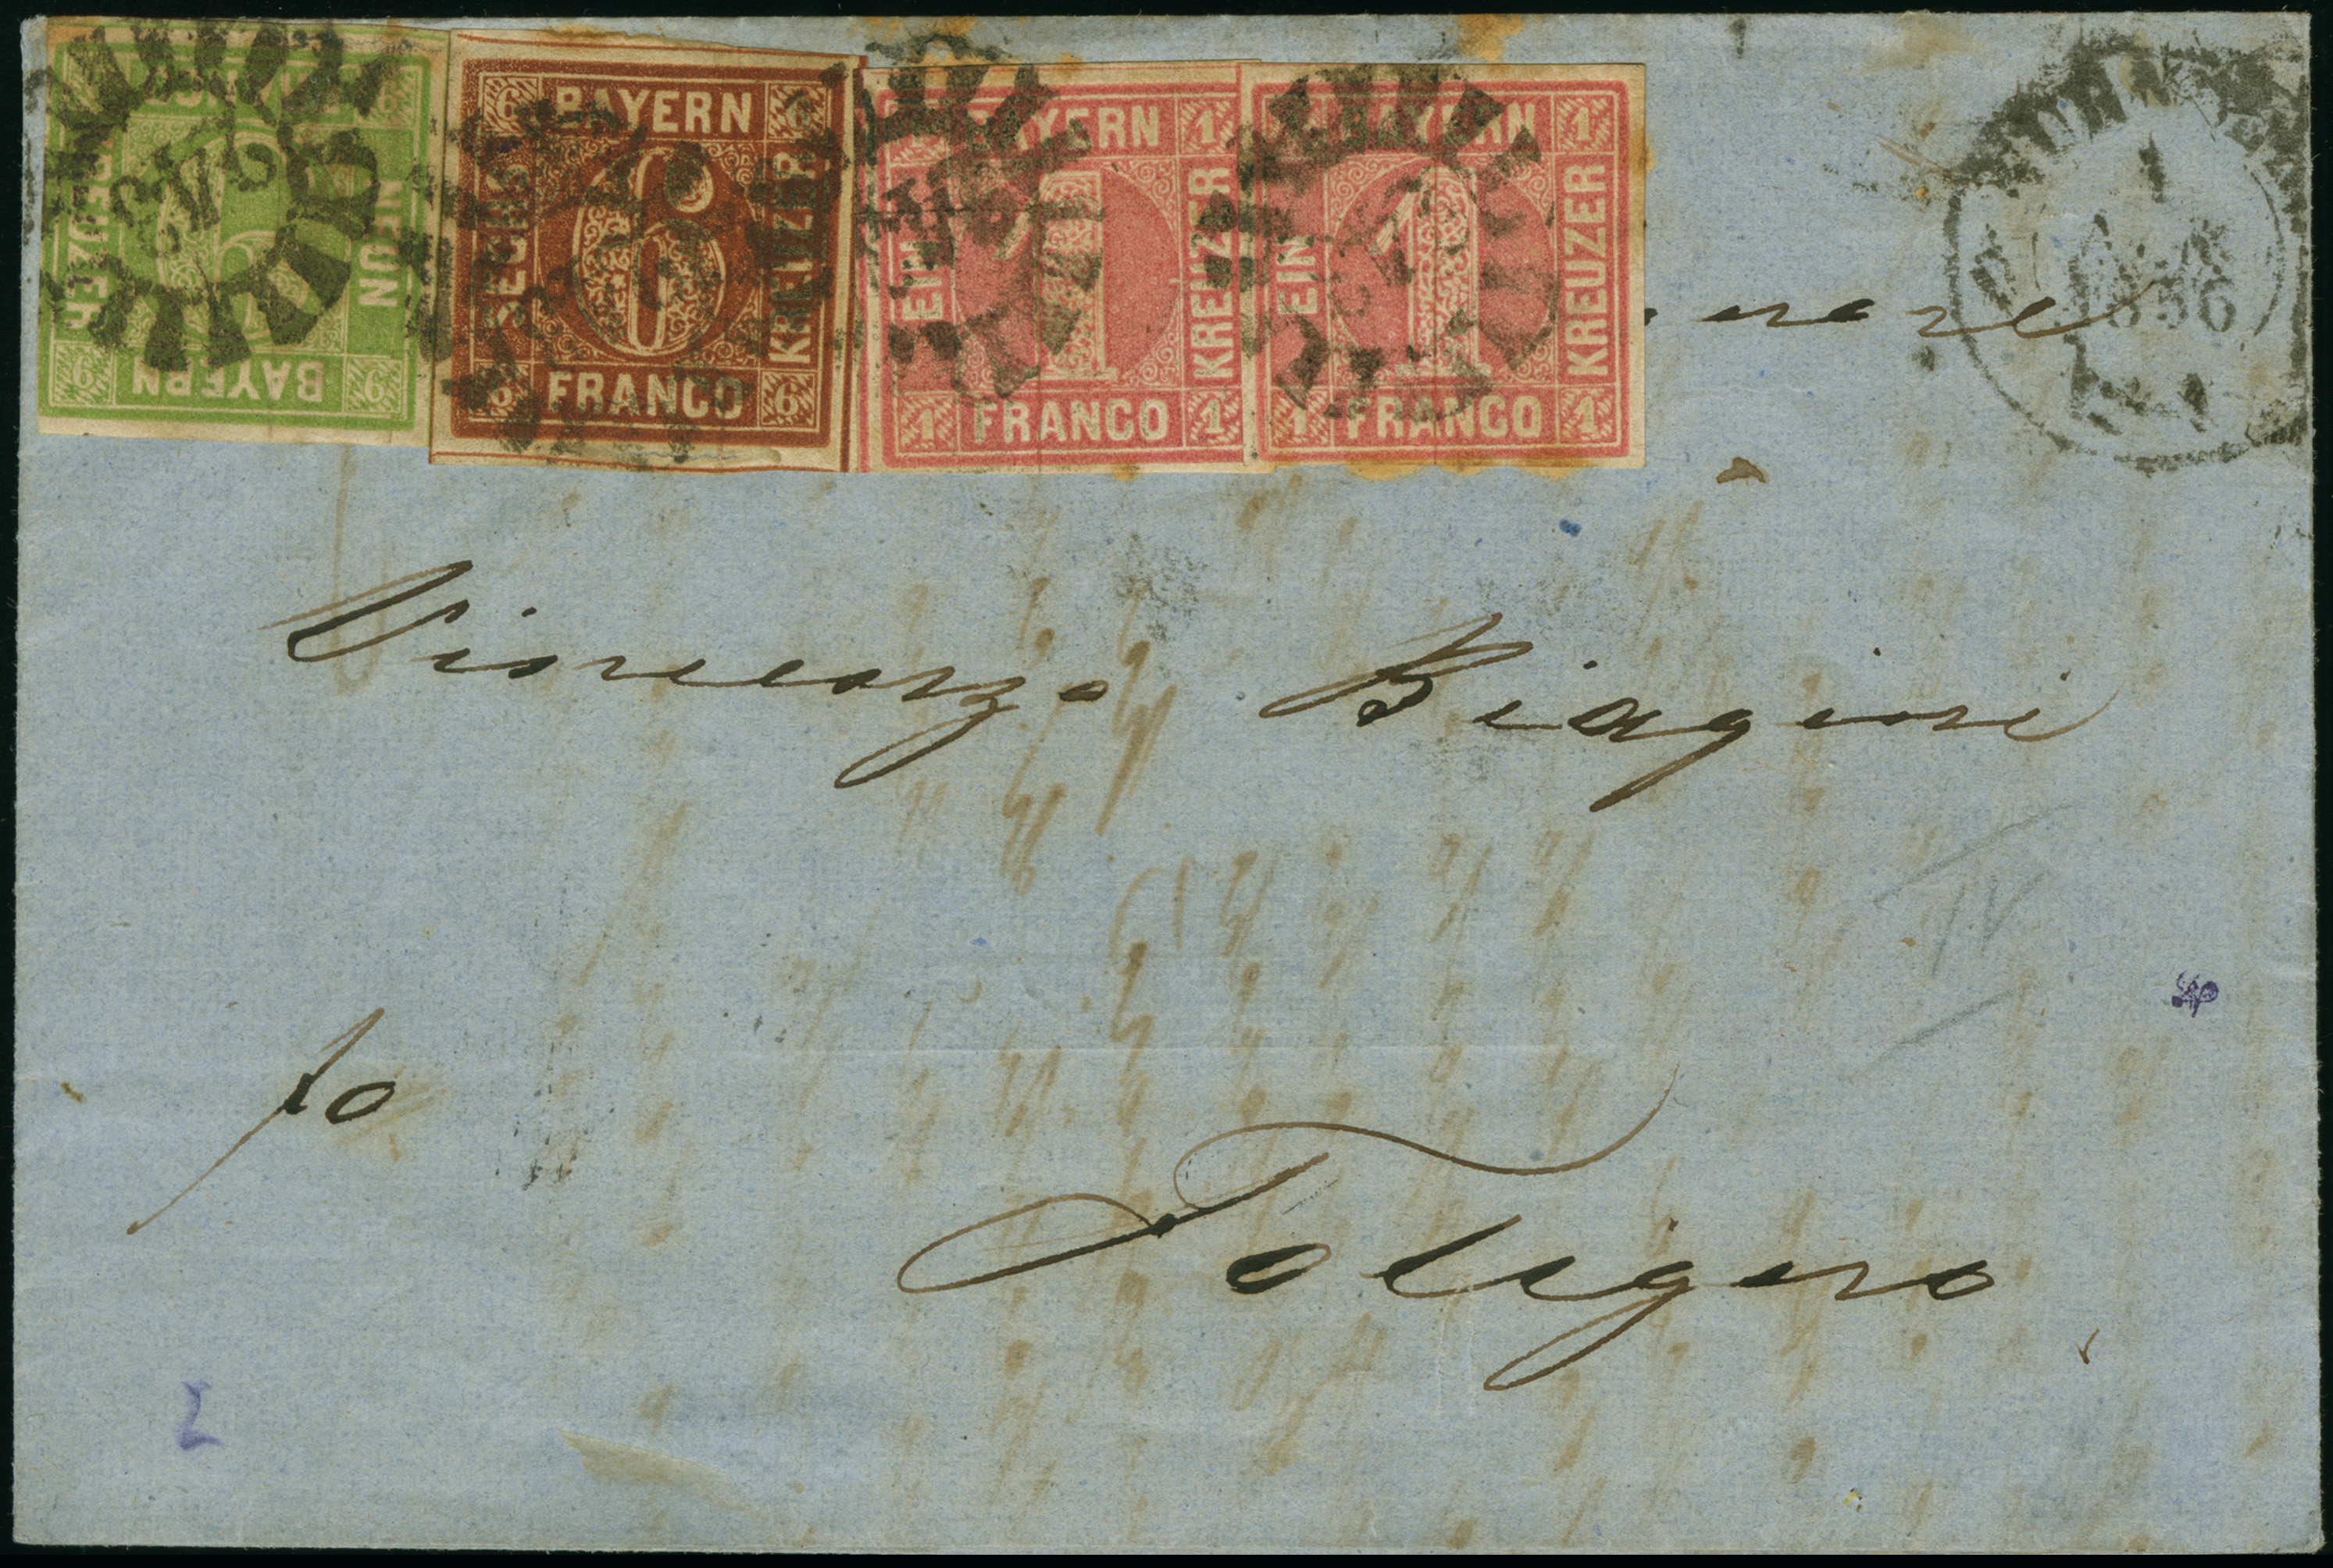 BAYERN NEUN KREUZER 9 9
6 BAYERN 6 SECHS 6 KREUZER 6 FRANCO 6
1 BAYERN 1 EIN 1 KREUZER 1 FRANCO 1
1 BAYERN 1 EIN 1 KREUZER 1 FRANCO 1
243
1
1856
Vincenzo Biagini
fo
Foligno